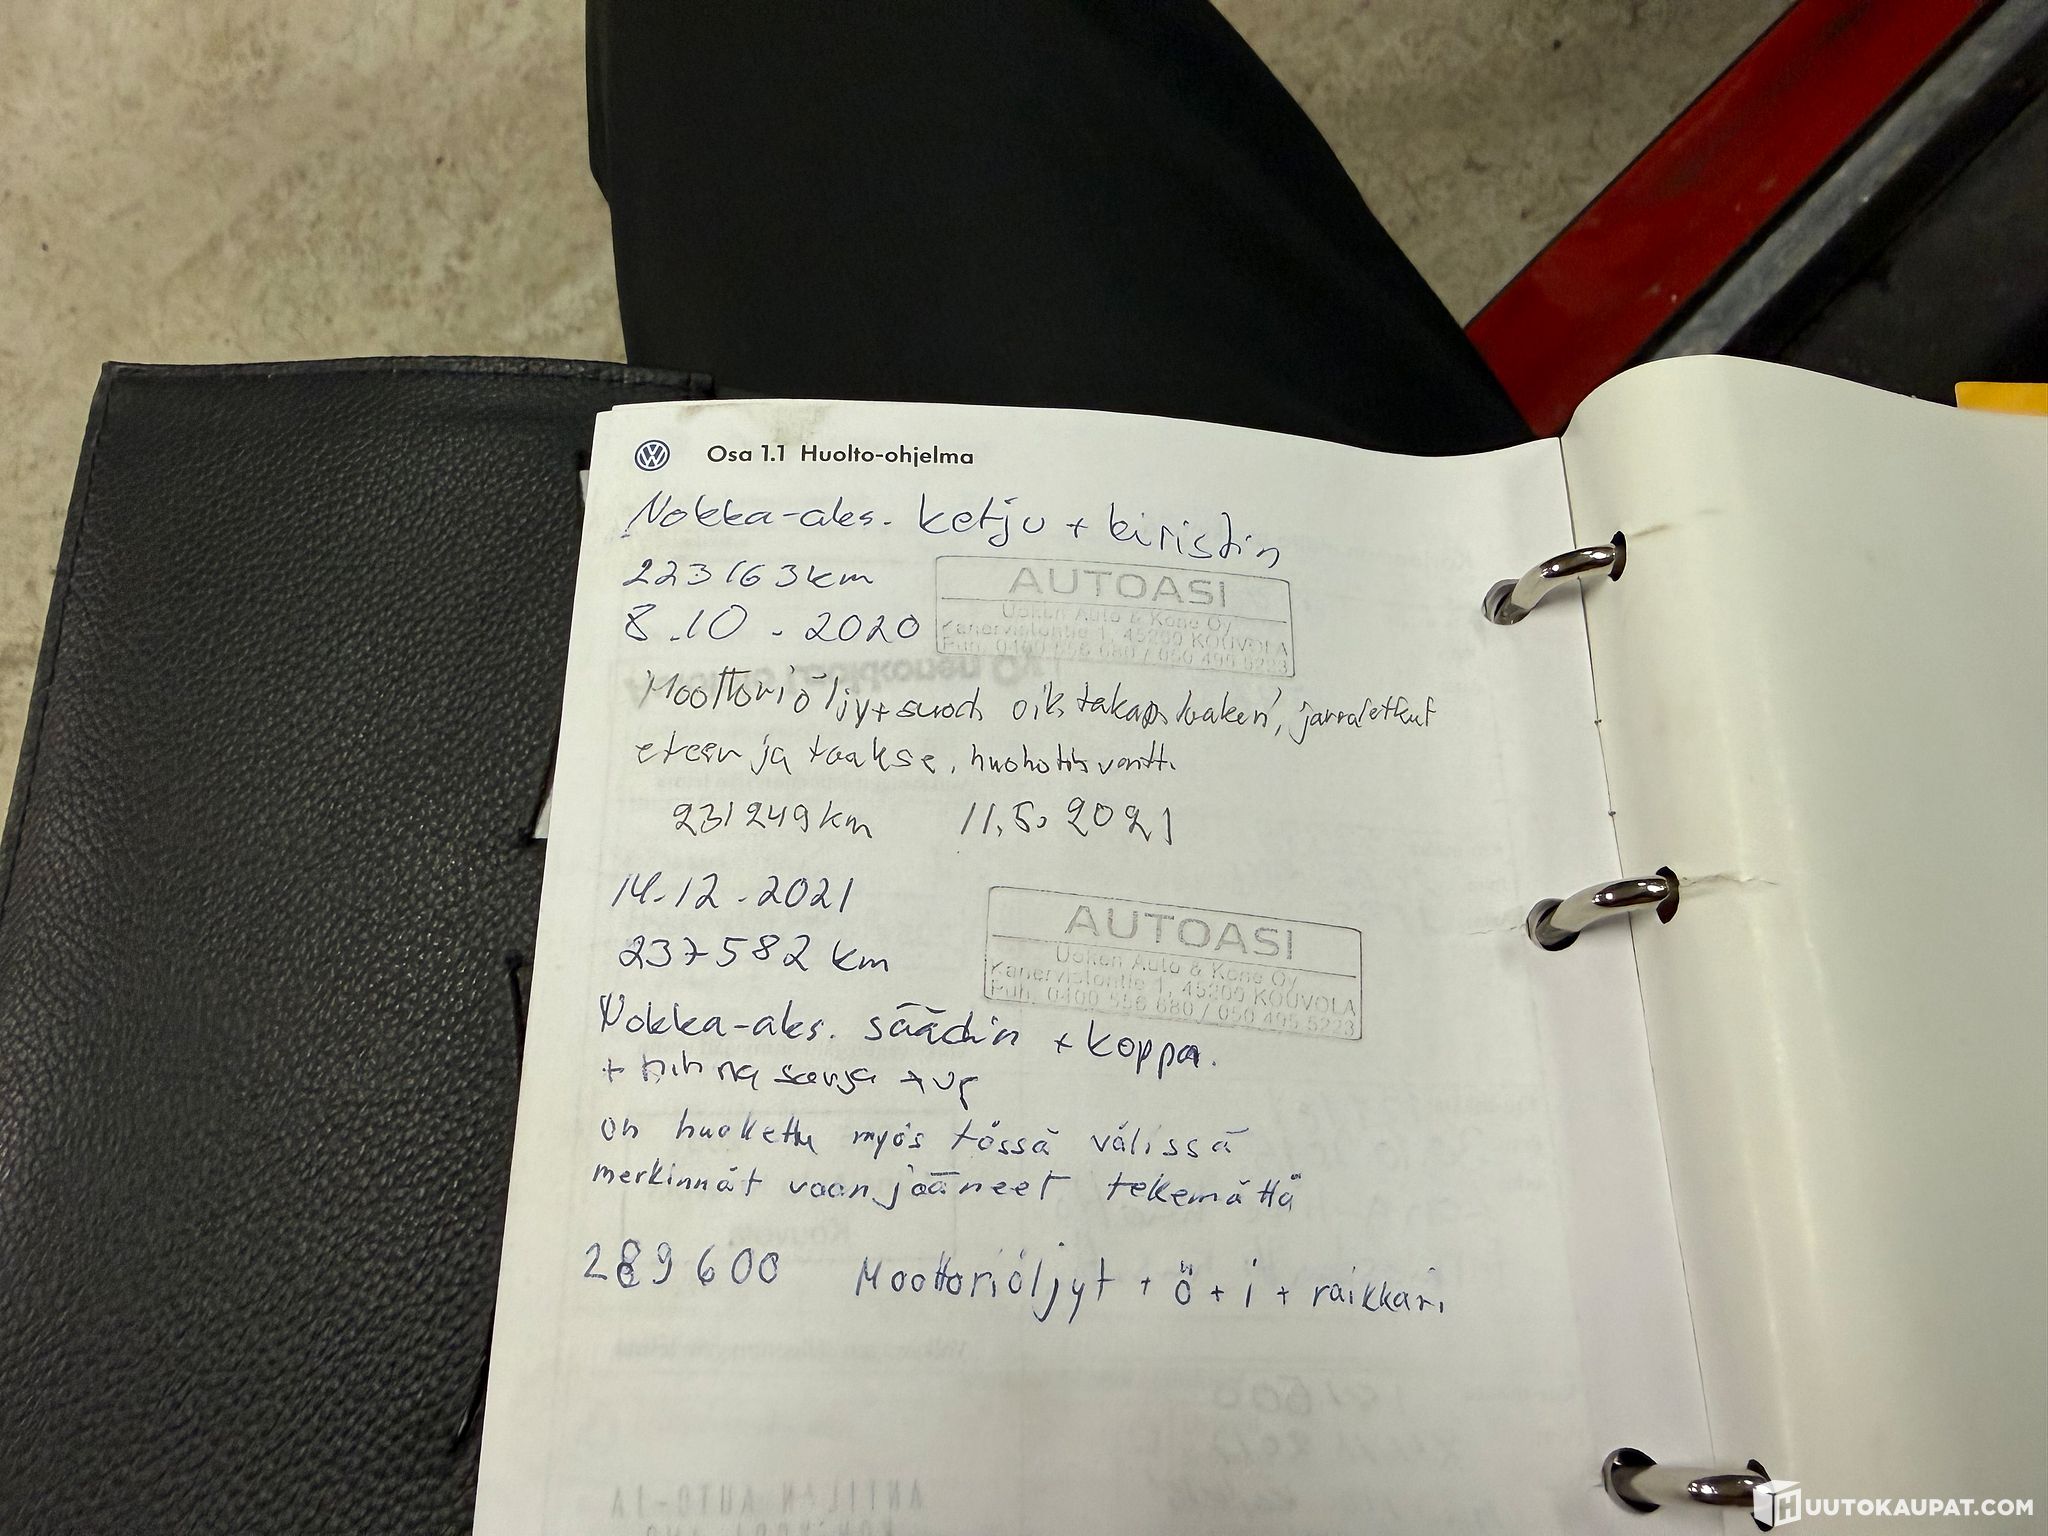 Osa 1.1 Huolto-ohjelma
Nokka-aks. ketju + kiristin
223163km
8.10.2020
AUTOASI
Uoken Auto & Kone Oy
Kanervistontie 1, 45200 KOUVOLA
Puh. 0400 556 680 / 050 495 5223
Moottoriöljy+suod oik. takap. laakeri, jarruletkut
eteen ja taakse, huohotin venttt.
231249km 11.5.2021
14.12.2021
237582 km
AUTOASI
Uoken Auto & Kone Oy
Kanervistontie 1, 45200 KOUVOLA
Puh. 0400 556 680 / 050 495 5223
Nokka-aks. säädin + koppa.
+ hihna sarja + vp
on huollettu myös tössä välissä
merkinnät vaan jääneet tekemättä
289600 Moottoriöljyt + ö + i + raikkari
HUUTOKAUPAT.COM